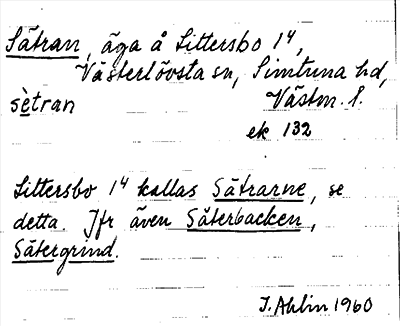 Sätran, äga å Sittersbo 1⁴,
Västerlövsta sn, Simtuna hd,
sètran Västm. l.
ek 132
Sittersbo 1⁴ kallas Sätrarne, se
detta. Jfr även Säterbacken,
Sätergrind.
I. Ahlin 1960